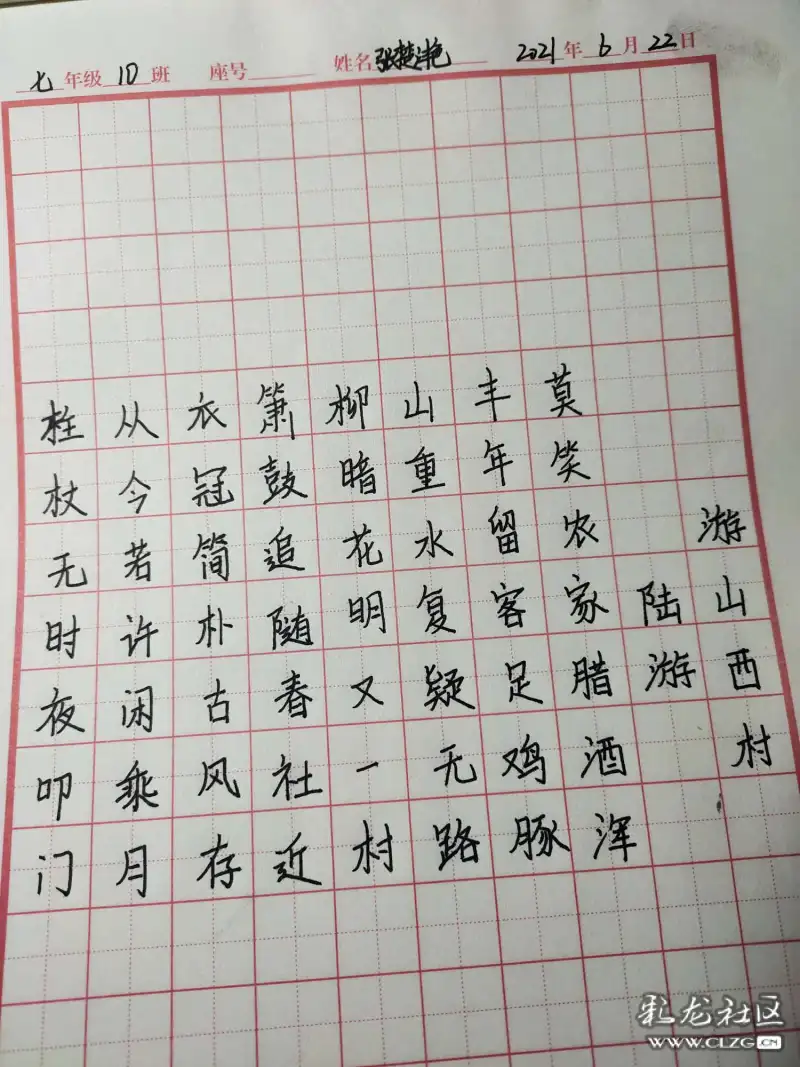 七年级10班 座号 姓名张楚艳 2021年6月22日
游山西村
陆游
莫笑农家腊酒浑
丰年留客足鸡豚
山重水复疑无路
柳暗花明又一村
箫鼓追随春社近
衣冠简朴古风存
从今若许闲乘月
杖无时夜叩门
彩龙社区
WWW.CLZG.CN